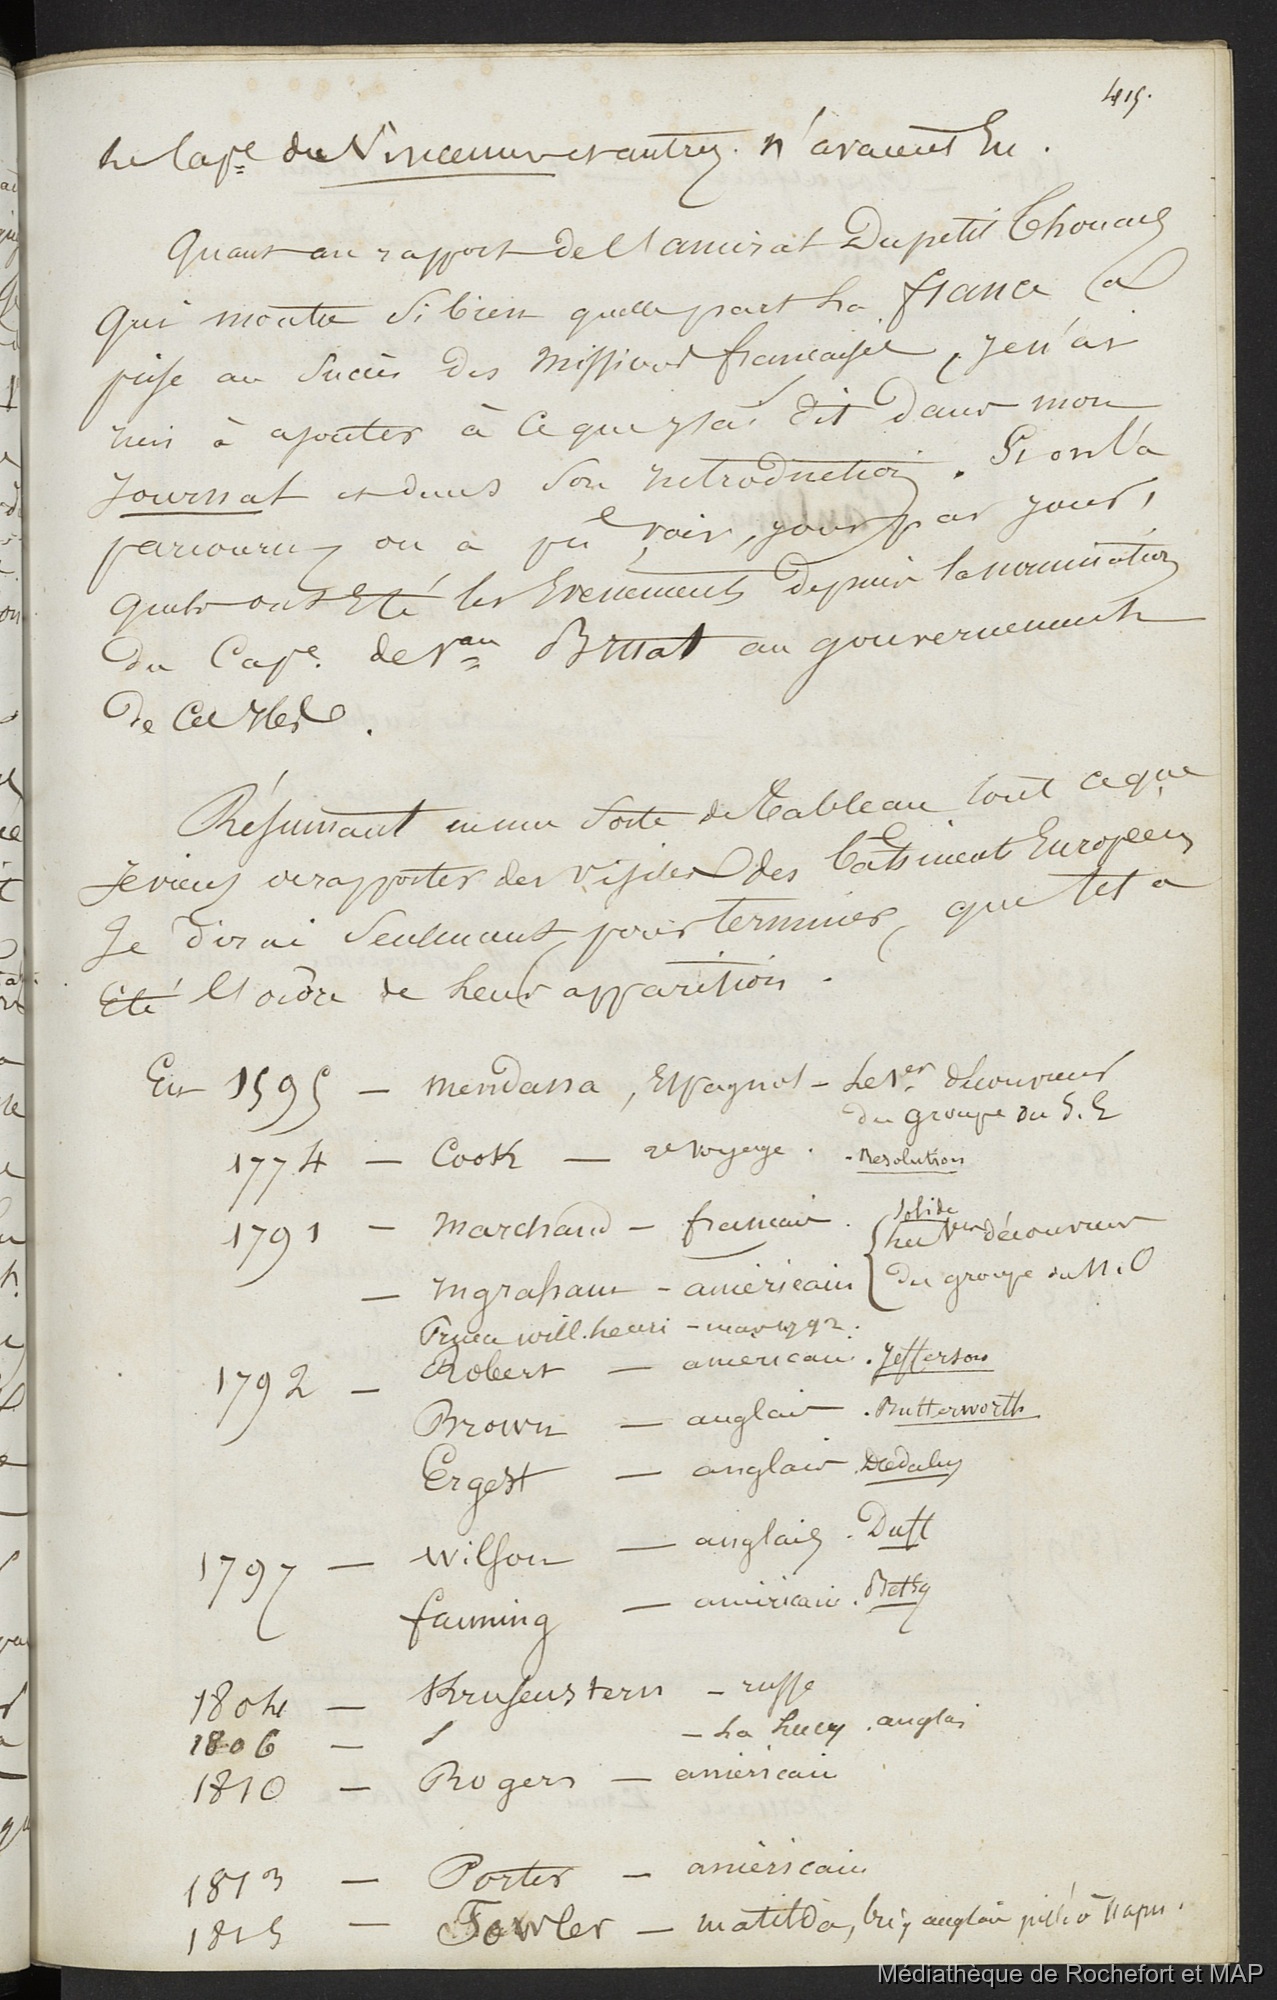 415.
le Cap.e du Vincennes et autres. n'avaient Eu.
Quant au rapport de l'amiral Dupetit Thouars
qui montre si bien quelle part la france a
prise au succès des missions françaises, je n'ai
rien à ajouter à ce que j'ai dit dans mon
Journal et dans son introduction. Si on l'a
parcouru, on a pu voir, jour par jour,
quels ont Eté les Evenements depuis la nomination
du Cap.e de V.au Bruat au gouvernement
de ces Iles.
Résumant en une sorte de tableau tout ce que
je viens de rapporter des visites des bâtiments Européens
je dirai seulement, pour terminer, que tel a
Eté l'ordre de leur apparition.
En 1595 — Mendana, Espagnol — le 1er découvreur
du groupe du S. E
1774 — Cook — 2e voyage. - Resolution
1791 — Marchand — francais. Solide
les 1ers découvreurs
— Ingraham - américain du groupe du N. O
Prince will. henri - mars 1792.
1792 — Robert — americain. Jefferson
Brown — anglais. Butterworth
Ergest — anglais Dedalus
1797 — Wilson — anglais. Duff
fanning — américain. Betsy
1804 — Krusenstern — russe
1806 — — La Lucy. anglais
1810 — Rogers — américain
1813 — Porter — américain
1815 — Fowler — matilda, brig anglais pillé à
Médiathèque de Rochefort et MAP